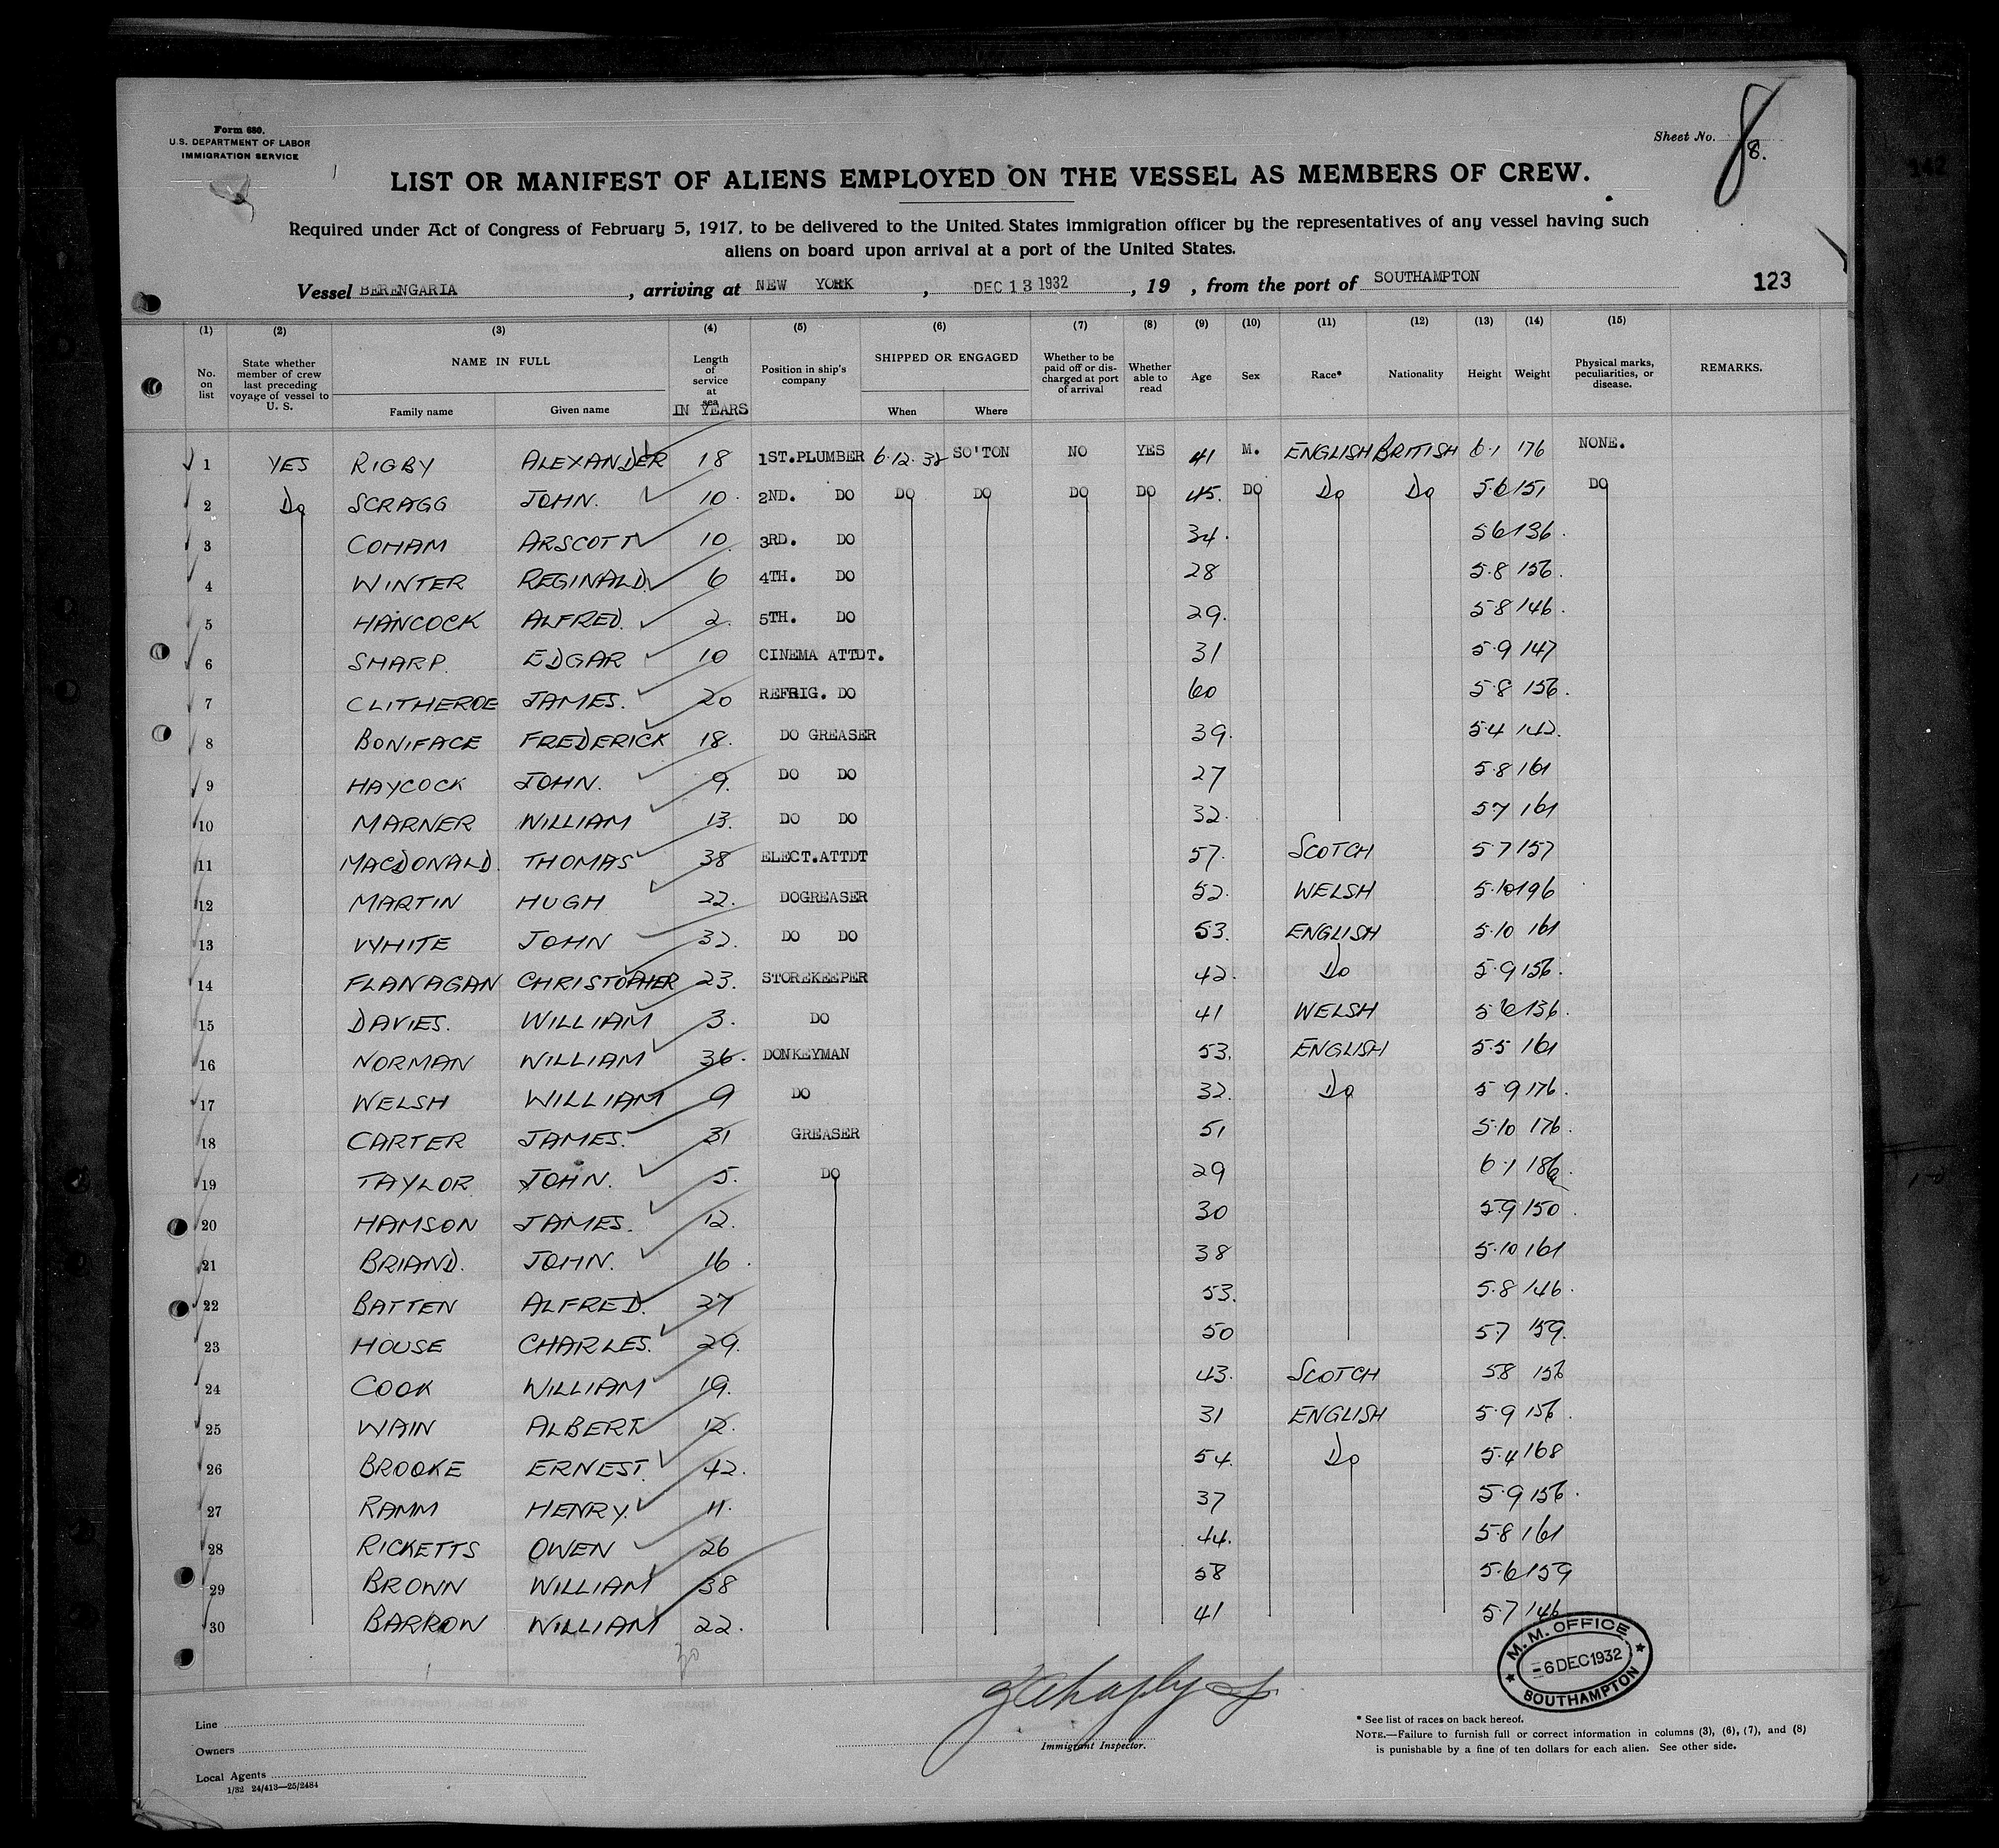 Form 680.
U.S. DEPARTMENT OF LABOR
IMMIGRATION SERVICE
Sheet No. 8
8.
LIST OR MANIFEST OF ALIENS EMPLOYED ON THE VESSEL AS MEMBERS OF CREW.
Required under Act of Congress of February 5, 1917, to be delivered to the United States immigration officer by the representatives of any vessel having such
aliens on board upon arrival at a port of the United States.
Vessel BERENGARIA, arriving at NEW YORK, DEC 13 1932, 19 , from the port of SOUTHAMPTON 123
(1) (2) (3) (4) (5) (6) (7) (8) (9) (10) (11) (12) (13) (14) (15)
No. on list State whether member of crew last preceding voyage of vessel to U. S. NAME IN FULL Family name Given name Length of service at sea IN YEARS Position in ship's company SHIPPED OR ENGAGED When Where Whether to be paid off or discharged at port of arrival Whether able to read Age Sex Race* Nationality Height Weight Physical marks, peculiarities, or disease. REMARKS.
1 YES RIGBY ALEXANDER 18 1ST.PLUMBER 6.12.32 SO'TON NO YES 41 M. ENGLISH BRITISH 6.1 176 NONE.
2 Do SCRAGG JOHN. 10. 2ND. DO DO DO DO DO 45. DO Do Do 5.6 151 DO
3 COHAM ARSCOTT 10. 3RD. DO 34. 5 6 136.
4 WINTER REGINALD. 6 4TH. DO 28 5.8 156.
5 HANCOCK ALFRED. 2. 5TH. DO 29. 5 8 146.
6 SHARP. EDGAR 10 CINEMA ATTDT. 31 5.9 147
7 CLITHEROE JAMES. 20 REFRIG. DO 60 5.8 156.
8 BONIFACE FREDERICK 18. DO GREASER 39. 5.4 142.
9 HAYCOCK JOHN. 9. DO DO 27 5.8 161
10 MARNER WILLIAM 13. DO DO 32. 5 7 161
11 MACDONALD. THOMAS 38 ELECT.ATTDT 57. SCOTCH 5.7 157
12 MARTIN HUGH 22. DOGREASER 52. WELSH 5.10 196
13 WHITE JOHN 32. DO DO 53. ENGLISH 5.10 161
14 FLANAGAN CHRISTOPHER 23. STOREKEEPER 42. Do 5.9 156.
15 DAVIES. WILLIAM 3. DO 41 WELSH 5 6 136.
16 NORMAN WILLIAM 36. DONKEYMAN 53. ENGLISH 5.5 161
17 WELSH WILLIAM 9 DO 32. Do 5 9 176.
18 CARTER JAMES. 31 GREASER 51 5.10 176.
19 TAYLOR. JOHN. 5. DO 29 6.1 186.
20 HAMSON JAMES. 12. 30 5.9 150.
21 BRIAND. JOHN. 16. 38 5.10 161
22 BATTEN ALFRED. 27 53. 5.8 146.
23 HOUSE CHARLES. 29. 50 5.7 159.
24 COOK WILLIAM 19. 43. SCOTCH 5.8 156
25 WAIN ALBERT 12. 31 ENGLISH 5.9 156.
26 BROOKE ERNEST. 42. 54. Do 5.4 168
27 RAMM HENRY. 11. 37 5.9 156.
28 RICKETTS OWEN 26 44. 5.8 161
29 BROWN WILLIAM 38 58 5.6 159
30 BARROW WILLIAM 22. 41 5.7 146
30
M. M. OFFICE
-6 DEC 1932
SOUTHAMPTON
Immigrant Inspector.
Line
Owners
Local Agents
1/32 24/413—25/2484
* See list of races on back hereof.
NOTE.—Failure to furnish full or correct information in columns (3), (6), (7), and (8)
is punishable by a fine of ten dollars for each alien. See other side.
142